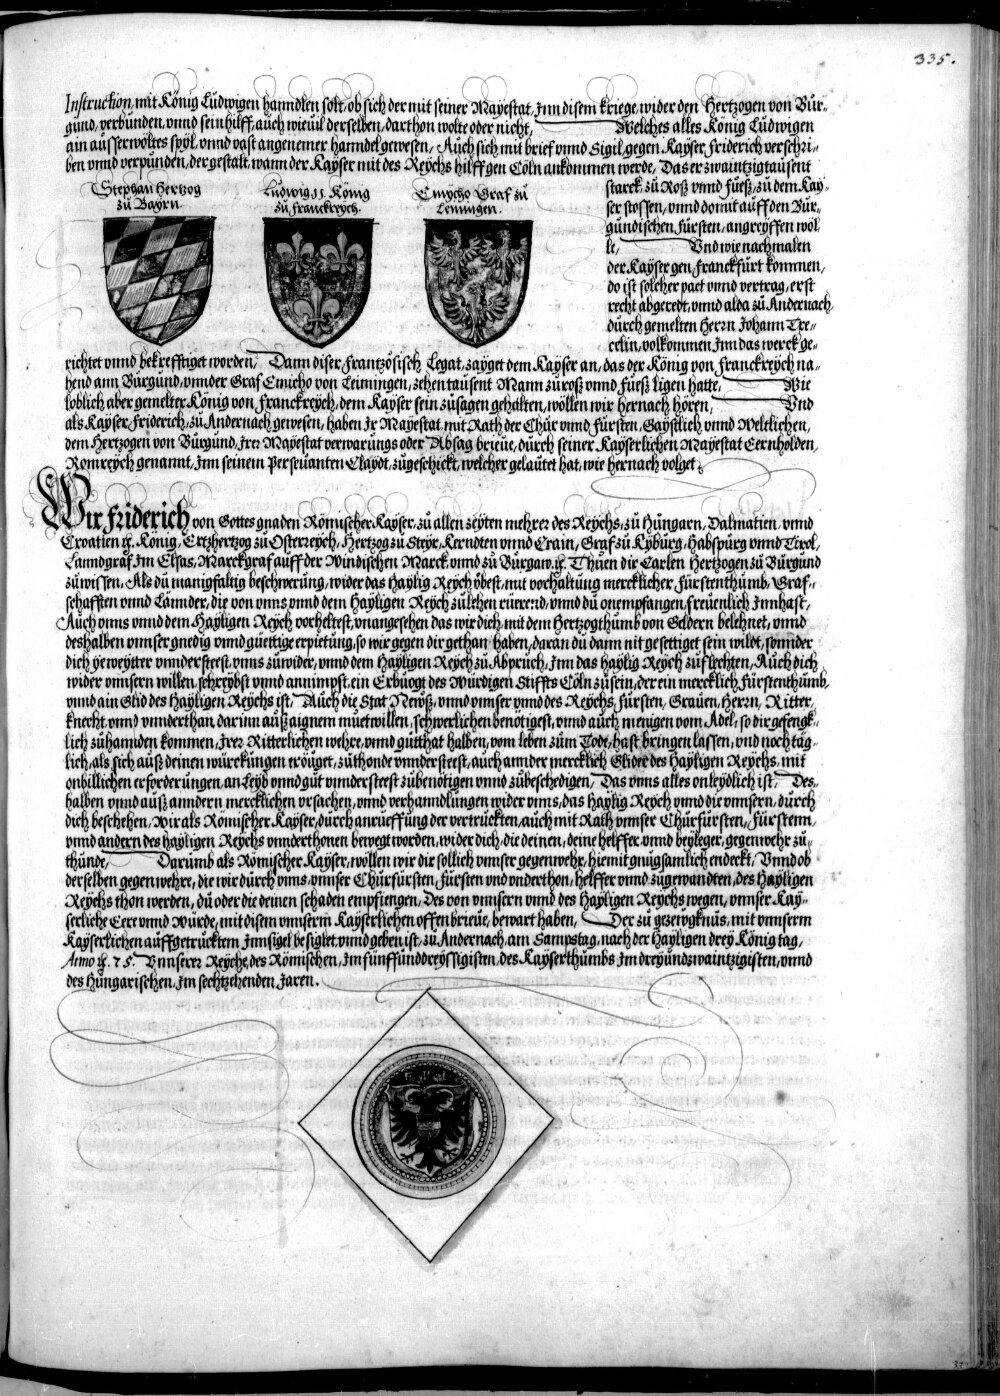 335.
Instruction, mit König Ludwigen hanndlen solt, ob sich der mit seiner Mayestat, Inn disem kriege, wider den Hertzogen von Bur-
gund, verbunden, vnnd sein hilff, auch wieuil derselben, darthon wolte oder nicht, Welches alles König Ludwigen
ain ausserwöltes spyl, vnnd vast angenemer hanndel gewesen, Auch sich mit brief vnnd Sigil, gegen Kayser Friderich verschri-
ben vnnd verpunden, der gestalt, wann der Kayser mit des Reychs hilff gen Cöln ankommen werde, Das er zwaintzig tausent
Stephan Hertzog
zu Bayrn.
Ludwig 11. König
zu Franckreych.
Emycho Graf zu
Leningen.
starck zu Roß vnnd Fueß, zu dem Kay-
ser stossen, vnnd domit auff den Bur-
gundischen Fürsten, angreyffen wöl
le, Vnd wie nachmalen
der Kayser gen Franckfurt kommen,
do ist solcher pact vnnd vertrag, erst
recht abgeredt, vnnd alda zu Andernach,
durch gemelten Herrn Johann Tre-
celin, volkommen Inn das werck ge-
richtet vnnd bekrefftiget worden, Dann diser Frantzösisch Legat, zayget dem Kayser an, das der König von Franckreych na-
hend ann Burgund, vnnder Graf Emicho von Leiningen, zehen tausent Mann zu roß vnnd Fueß ligen hatte, Wie
loblich aber gemelter König von Franckreych, dem Kayser sein zusagen gehalten, wöllen wir hernach hören, Vnd
als Kayser Friderich, zu Andernach gewesen, haben Ir Mayestat, mit Rath der Chur vnnd Fürsten, Gaystlich vnnd Weltlichen,
dem Hertzogen von Burgund, Irer Mayestat verwarungs oder Absag brieue, durch seiner Kayserlichen Mayestat Eernholden,
Romreych genannt, Inn seinem Perseuanten Claydt, zugeschickt, welcher gelautet hat, wie hernach volget.
Wir Friderich von Gottes gnaden Römischer Kayser, zu allen zeyten mehrer des Reychs, zu Hungarn, Dalmatien vnnd
Croatien ꝛc. König, Ertzhertzog zu Osterreych, Hertzog zu Steyr, Kerndten vnnd Crain, Graf zu Kyburg, Habspurg vnnd Tirol,
Lanndgraf Im Elsas, Marckgraf auff der Windischen Marck, vnnd zu Burgaw, ꝛc. Thuen dir Carlen Hertzogen zu Burgund
zu wissen, Als du manigfaltig beschwerung, wider das Haylig Reych übest, mit vorhaltung mercklicher, Fürstenthumb, Graf-
schafften vnnd Lännder, die von vnns vnnd dem Hayligen Reych zu lehen rüerend, vnnd du onempfangen freuenlich Innhast,
Auch vnns vnnd dem Hayligen Reych vorheltest, vnangesehen das wir dich, mit dem Hertzogthumb von Geldern belehnet, vnnd
deshalben vnnser gnedig vnnd güettige erpietung, so wir gegen dir gethan haben, daran du dann nit gesettiget sein wildt, sonnder
dich ye weytter vnndersteest, vnns zuwider, vnnd dem Hayligen Reych zu Abpruch, Inn das haylig Reych zu flechten, Auch dich
wider vnnsern willen, schreybst vnnd annimpst, ein Erbuogt des Würdigen Stiffts Cöln zu sein, der ein mercklich Fürstenthumb,
vnnd ain Glid des Hayligen Reychs ist, Auch die Stat Newß, vnnd vnnser vnnd des Reychs, Fürsten, Grauen, Herrn, Ritter,
knecht, vnnd vnnderthan, darinn auß aignem muetwillen, schwerlichen benötigest, vnnd auch menigen vom Adel, so dir gefengk-
lich zu hannden kommen, Irer Ritterlichen wehre, vnnd gutthat halben, vom leben zum Tode, hast bringen lassen, vnd noch täg-
lich, als sich auß deinen würckungen eröuget, zuthonde vnndersteest, auch annder mercklich Glider des Hayligen Reychs, mit
onbillichen erforderungen, an Leyb vnnd gut vnndersteest zu benötigen vnnd zubeschedigen, Das vnns alles onleydlich ist, Des-
halben vnnd auß anndern mercklichen vrsachen, vnnd verhanndlungen wider vnns, das Haylig Reych vnnd die vnnsern, durch
dich beschehen, Wir als Römischer Kayser, durch anrueffung der vertruckten, auch mit Rath vnnser Churfürsten, Fürstenn,
vnnd andern des hayligen Reychs vnnderthonen bewegt worden, wider dich, die deinen, deine helffer vnnd beyleger, gegenwehr zu-
thunde, Darumb als Römischer Kayser, wöllen wir dir sollich vnnser gegenwehr, hiemit gnugsamlich endeckt, Vnnd ob
derselben gegenwehre, die wir durch vnns, vnnser Churfürsten, Fürsten vnd vnderthon, helffer vnnd zugewandten, des Hayligen
Reychs thon werden, du oder die deinen schaden empfiengen, Des von vnnsern vnnd des Hayligen Reychs wegen, vnnser Kay-
serliche Eere vnnd Würde, mit disem vnnserm Kayserlichen offen brieue, bewart haben, Der zu gezewgknus, mit vnnserm
Kayserlichen auffgetrucktem Innsigel besiglet, vnnd geben ist, zu Andernach, am Sampstag, nach der Hayligen drey König tag,
Anno ꝛc. 75. Vnnserer Reyche, des Römischen, Im fünffunddreyssigisten, des Kayserthumbs Im dreyundzwaintzigisten, vnnd
des Hungarischen, Im sechtzehenden Jaren.